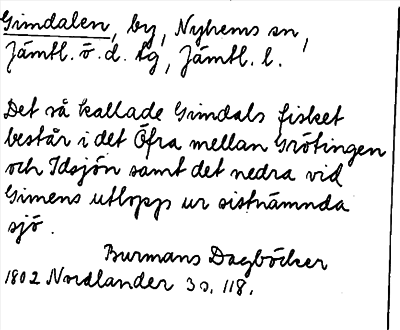 Gimdalen, by, Nyhems sn,
Jämtl. ö. d. tg, Jämtl. l.
Det så kallade Gimdals fisket
består i det Öfra mellan Grötingen
och Idsjön samt det nedra vid
Gimens utlopp ur sistnämnda
sjö.
Burmans Dagböcker
1802 Nordlander 3 s. 118.